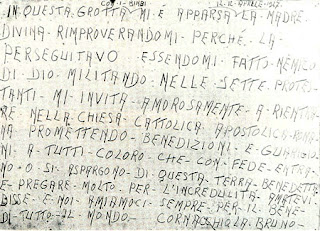 CON·I·BIMBI 12·IV·APRILE·1947·
IN·QUESTA·GROTTA·MI·È·APPARSA·LA·MADRE·
DIVINA·RIMPROVERANDOMI·PERCHÉ·LA·
PERSEGUITAVO·ESSENDOMI·FATTO·NEMICO·
DI·DIO·MILITANDO·NELLE·SETTE·PROTE·
TANTI·MI·INVITA·AMOROSAMENTE·A·RIENTRA
RE·NELLA·CHIESA·CATTOLICA·APOSTOLICA·ROMA·
NA·PROMETTENDO·BENEDIZIONI·E·GUARIGIO·
NI·A·TUTTI·COLORO·CHE·CON·FEDE·ENTRA·
NO·O·SI·ASPARGONO·DI·QUESTA·TERRA·BENEDETTA·
E·PREGARE·MOLTO·PER·L'INCREDULITÀ·AMATEVI·
DISSE·E·NOI·AMIAMOCI·SEMPRE·PER·IL·BENE·
DI·TUTTO·IL·MONDO— CORNACCHIOLA·BRUNO—